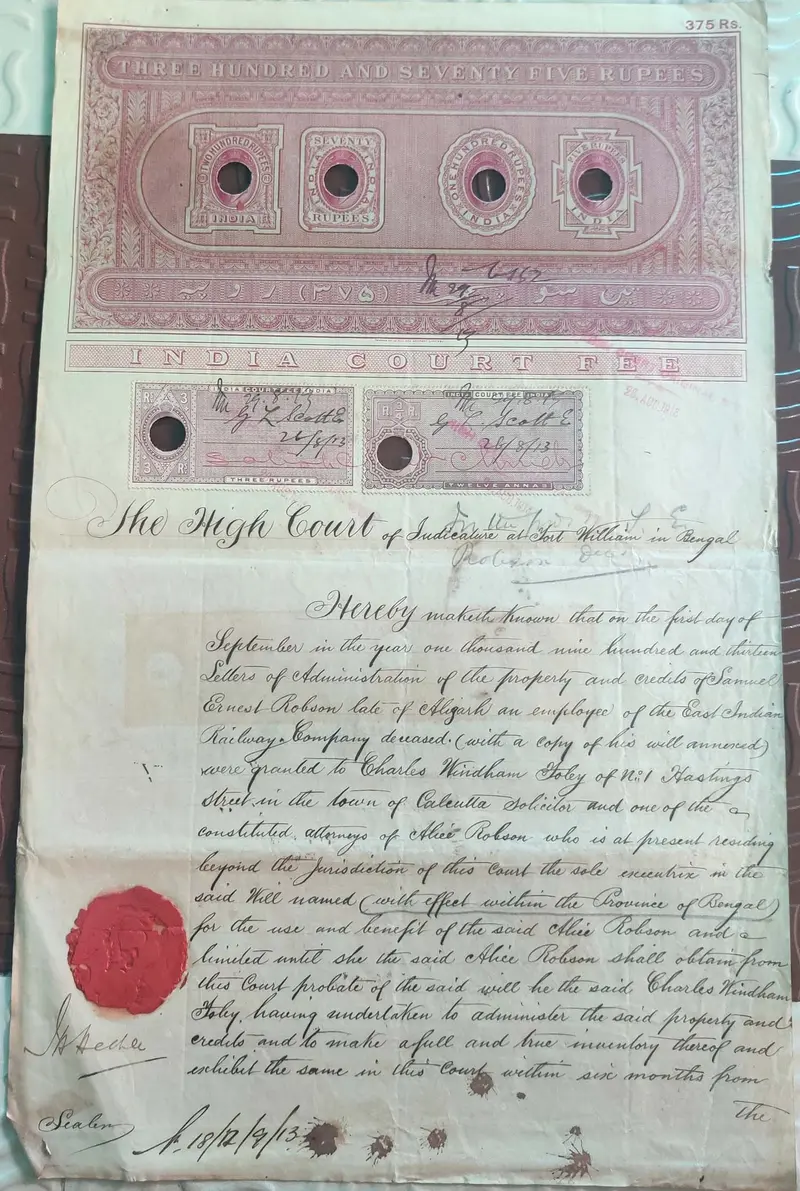 375 Rs.
THREE HUNDRED AND SEVENTY FIVE RUPEES
TWO HUNDRED RUPEES INDIA
SEVENTY INDIA INDIA RUPEES
ONE HUNDRED RUPEES INDIA
FIVE RUPEES INDIA
29/8/13
INDIA COURT FEE
INDIA COURT FEE INDIA
R 3
29.8.13
G L Scott
26/8/13
3 R
THREE RUPEES
INDIA COURT FEE INDIA
G L Scott
26/8/13
TWELVE ANNAS
The High Court of Judicature at Fort William in Bengal
Robson
Hereby maketh known that on the first day of
September in the year one thousand nine hundred and thirteen
Letters of Administration of the property and credits of Samuel
Ernest Robson late of Aligarh an employee of the East Indian
Railway Company deceased (with a copy of his will annexed)
were granted to Charles Windham Foley of No 1 Hastings
Street in the town of Calcutta Solicitor and one of the
constituted attorneys of Alice Robson who is at present residing
beyond the Jurisdiction of this Court the sole executrix in the
said Will named (with effect within the Province of Bengal)
for the use and benefit of the said Alice Robson and
limited until she the said Alice Robson shall obtain from
this Court probate of the said will he the said Charles Windham
Foley, having undertaken to administer the said property and
credits and to make a full and true inventory thereof and
exhibit the same in this Court within six months from
the
Sealer
18/12/9/13